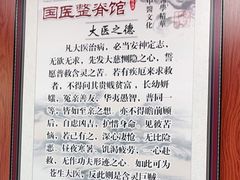 国医整脊馆
大医之德
凡大医治病，必当安神定志，
无欲无求，先发大慈恻隐之心，誓
愿普救含灵之苦。若有疾厄来求救
者，不得问其贵贱贫富，长幼妍
媸，怨亲善友，华夷愚智，普同一
等，皆如至亲之想，亦不得瞻前顾
后，自虑凶吉，护惜身命。见彼苦
恼，若己有之，深心凄怆，勿避险
恶、昼夜寒暑、饥渴疲劳，一心赴
救，无作功夫形迹之心。如此可为
苍生大医，反此则是含灵巨贼
中医文化